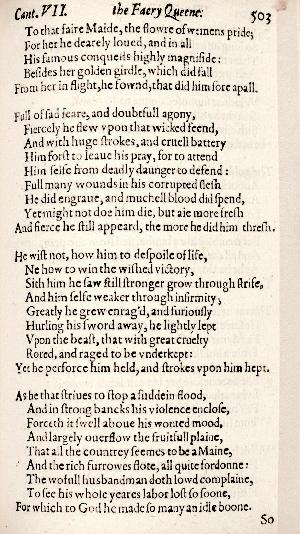 Cant. VII. the Faery Queene. 503
To that faire Maide, the flowre of wemens pride;
For her he dearely loued, and in all
His famous conquests highly magnifide:
Besides her golden girdle, which did fall
From her in flight, he fownd, that did him sore apall.
Full of sad feare, and doubtfull agony,
Fiercely he flew vpon that wicked feend,
And with huge strokes, and cruell battery
Him forst to leaue his pray, for to attend
Him selfe from deadly daunger to defend:
Full many wounds in his corrupted flesh
He did engraue, and muchell blood did spend,
Yet might not doe him die, but aie more fresh
And fierce he still appeard, the more he did him thresh.
He wist not, how him to despoile of life,
Ne how to win the wished victory,
Sith him he saw still stronger grow through strife,
And him selfe weaker through infirmity;
Greatly he grew enrag'd, and furiously
Hurling his sword away, he lightly lept
Vpon the beast, that with great cruelty
Rored, and raged to be vnderkept:
Yet he perforce him held, and strokes vpon him hept.
As he that striues to stop a suddein flood,
And in strong bancks his violence enclose,
Forceth it swell aboue his wonted mood,
And largely ouerflow the fruitfull plaine,
That all the countrey seemes to be a Maine,
And the rich furrowes flote, all quite fordonne:
The wofull husbandman doth lowd complaine,
To see his whole yeares labor lost so soone,
For which to God he made so many an idle boone.
So